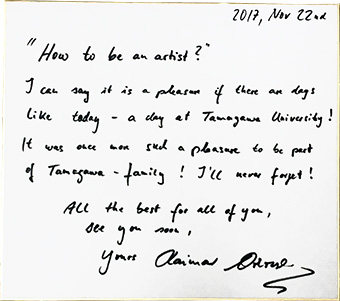 2017, Nov 22nd
"How to be an artist?"
I can say it is a pleasure if there are days
like today - a day at Tamagawa University!
It was once more such a pleasure to be part
of Tamagawa - family! I'll never forget!
All the best for all of you,
see you soon,
Yours